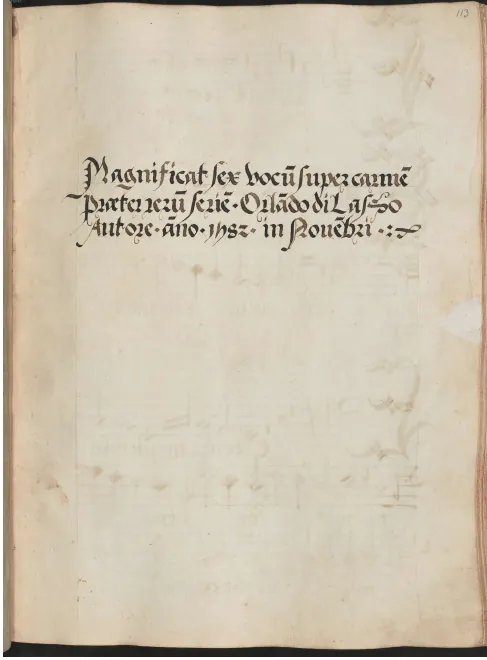 113
Magnificat sex vocū super carmē
præter rerū seriē · Orlādo di Lasso
Autore · āno · 1582 · in Nouēbri ·:~